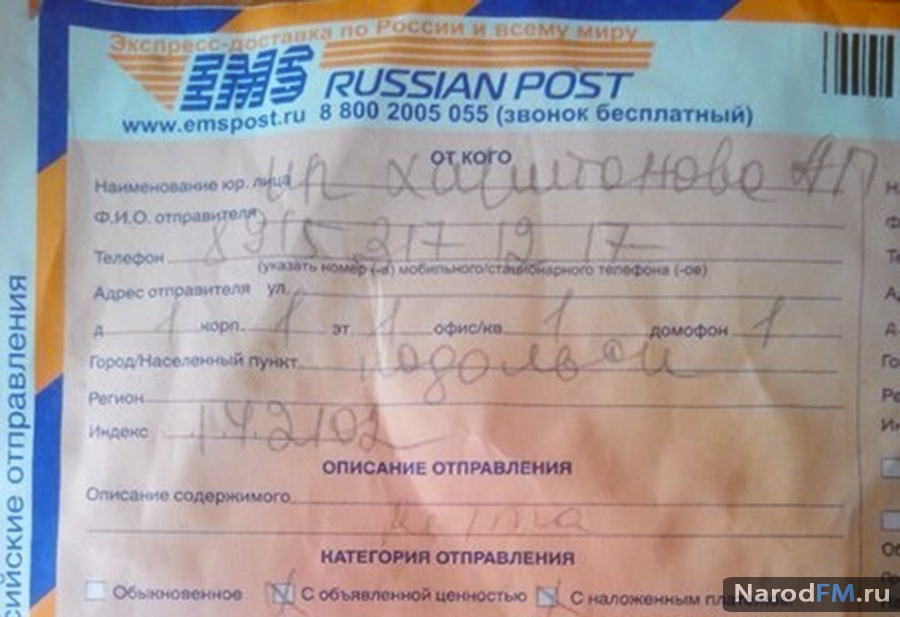 Экспресс-доставка по России и всему миру
EMS RUSSIAN POST
www.emspost.ru 8 800 2005 055 (звонок бесплатный)
ОТ КОГО
Наименование юр. лица ип Харитонова АП
Ф.И.О. отправителя
Телефон 8915 317 19 17
(указать номер (-а) мобильного/стационарного телефона (-ов)
Адрес отправителя ул.
д 1 корп. 1 эт. 1 офис/кв 1 домофон 1
Город/Населенный пункт
Регион
Индекс 142102
ОПИСАНИЕ ОТПРАВЛЕНИЯ
Описание содержимого
КАТЕГОРИЯ ОТПРАВЛЕНИЯ
Обыкновенное С объявленной ценностью С наложенным платежом
NarodFM.ru